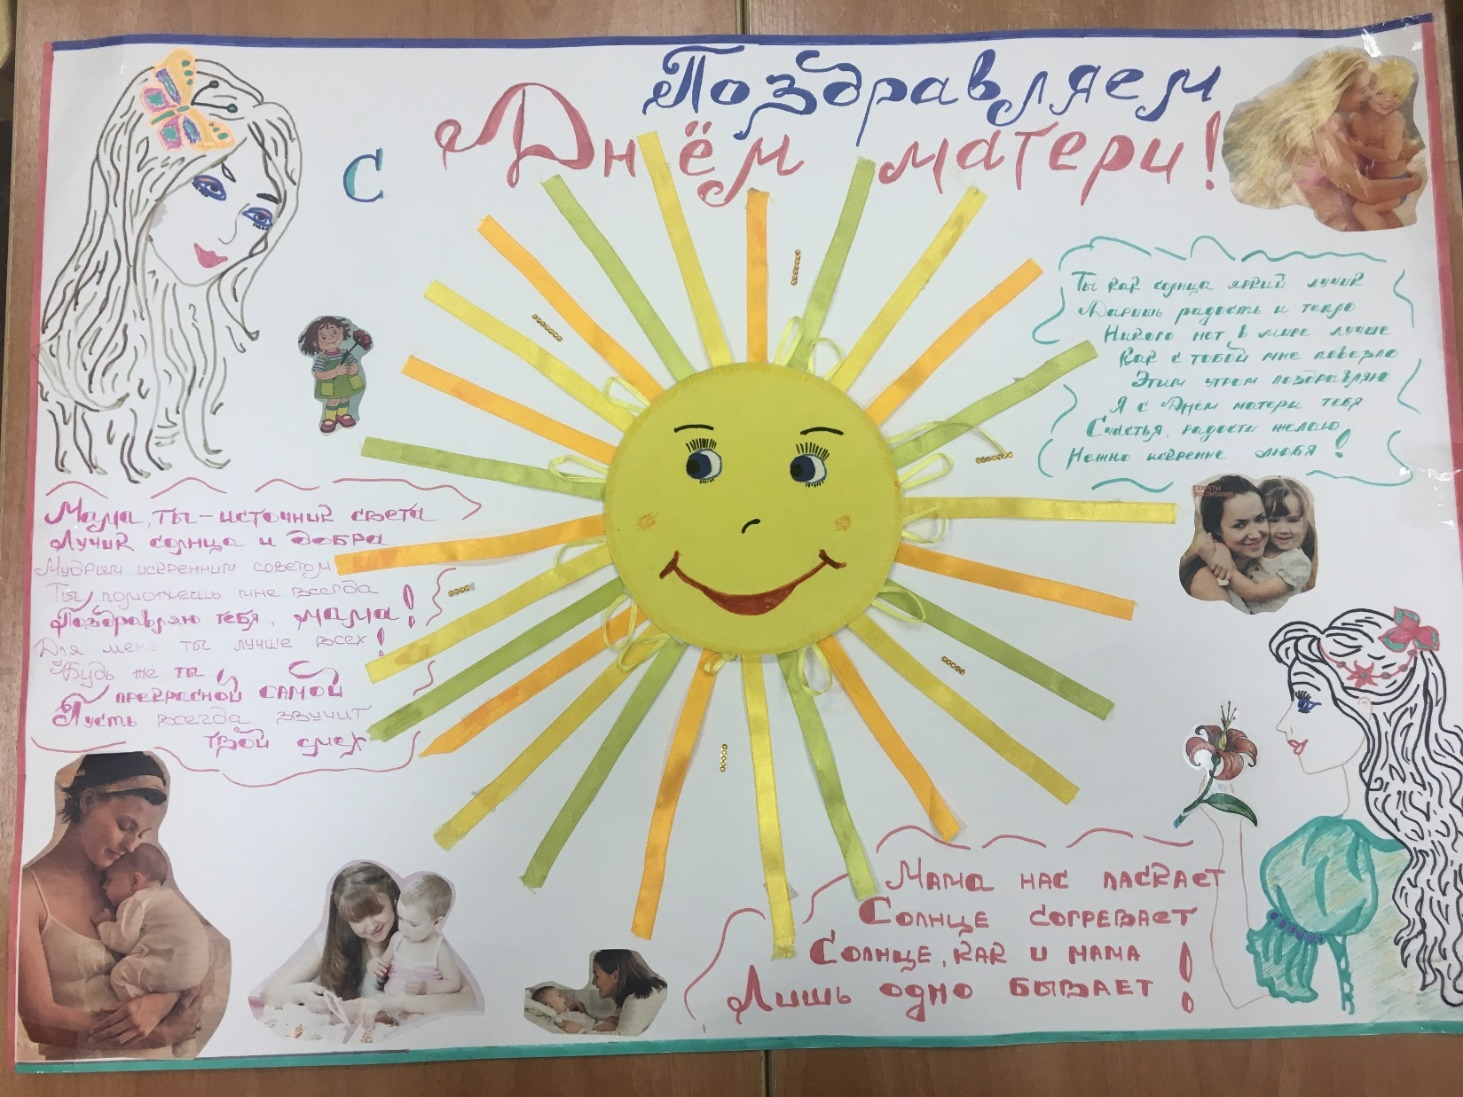 Поздравляем
с Днём матери!
Ты как солнца яркий лучик
Даришь радость и тепло
Никого нет в мире лучше
Как с тобой мне повезло
Этим утром поздравляю
Я с Днём матери тебя
Счастья, радости желаю
Нежно искренне любя!
Мама, ты - источник света
Лучик солнца и добра
Мудрым искренним советом
Ты поможешь мне всегда
Поздравляю тебя, мама!
Для меня ты лучше всех!
Будь же ты
прекрасной самой
Пусть всегда звучит
твой смех
Мама нас ласкает
Солнце согревает
Солнце, как и мама
Лишь одно бывает!